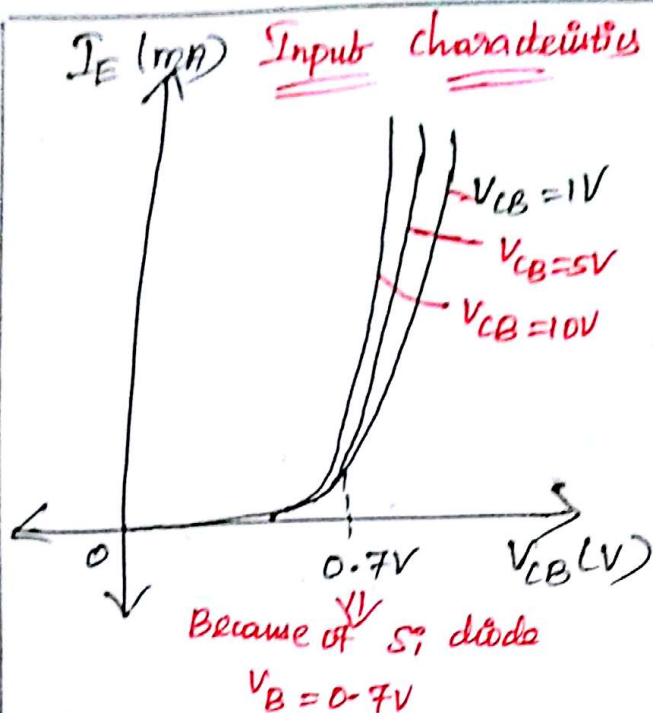 I_E (mA) Input characteristics
V_CB = 1V
V_CB = 5V
V_CB = 10V
0
0.7V
V_CB (V)
Because of Si diode
V_B = 0.7V